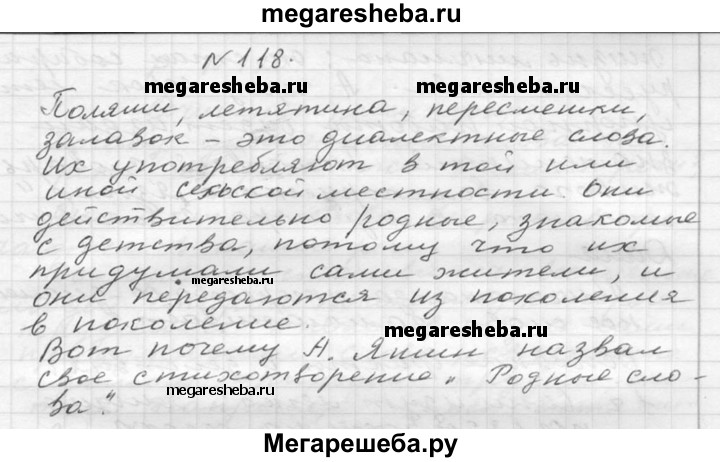 megaresheba.ru
N 118.
megaresheba.ru
megaresheba.ru
Поляши, летятина, пересмешки,
залавок – это диалектные слова.
Их употребляют в той или
иной сельской местности. Они
действительно родные, знакомые
с детства, потому что их
придумали сами жители, и
megaresheba.ru
они передаются из поколения
в поколение.
megaresheba.ru
Вот почему А. Яшин назвал
свое стихотворение „ Родные сло-
megaresheba.ru
ва".
Мегарешеба.ру